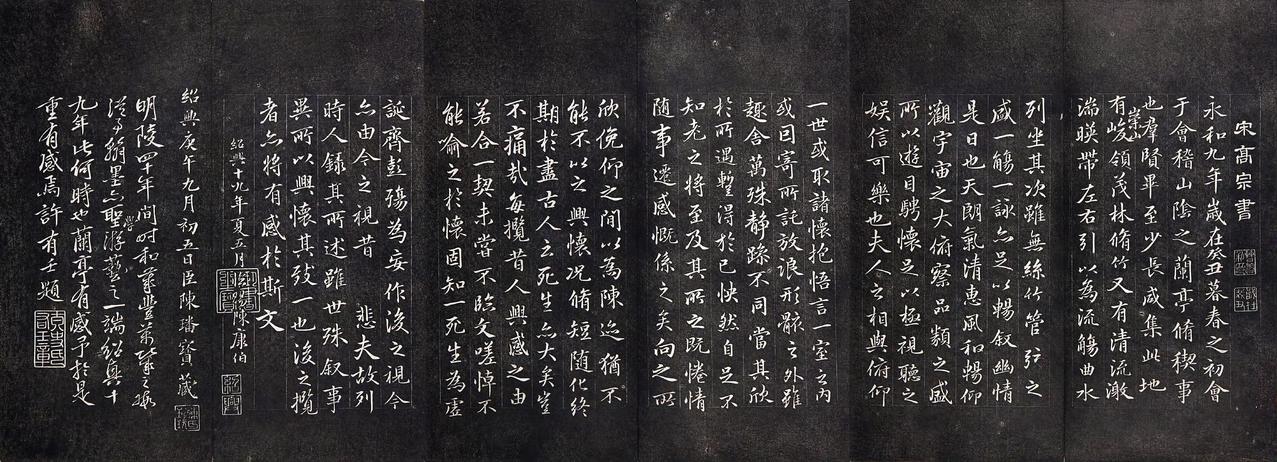 宋高宗書
永和九年歲在癸丑暮春之初會
于會稽山陰之蘭亭脩稧事
也羣賢畢至少長咸集此地
有崇峻領茂林脩竹又有清流激
湍暎帶左右引以為流觴曲水
列坐其次雖無絲竹管弦之
盛一觴一詠亦足以暢叙幽情
是日也天朗氣清惠風和暢仰
觀宇宙之大俯察品類之盛
所以遊目騁懷足以極視聽之
娛信可樂也夫人之相與俯仰
一世或取諸懷抱悟言一室之內
或因寄所託放浪形骸之外雖
趣舍萬殊静躁不同當其欣
於所遇蹔得於己怏然自足不
知老之將至及其所之既惓情
隨事遷感慨係之矣向之所
欣俛仰之間以為陳迹猶不
能不以之興懷况脩短隨化終
期於盡古人云死生亦大矣豈
不痛哉每攬昔人興感之由
若合一契未嘗不臨文嗟悼不
能喻之於懷固知一死生為虛
誕齊彭殤為妄作後之視今
亦由今之視昔 悲夫故列
時人錄其所述雖世殊叙事
異所以興懷其致一也後之攬
者亦將有感於斯文
紹興十九年夏五月 陳康伯
紹興庚午九月初五日臣陳璠寶藏
明陵四十年間時和歲豐萬幾之暇
游翰墨亦聖游藝之一端紹興十
九年此何時也蘭亭有感予於是
重有感焉許有壬題